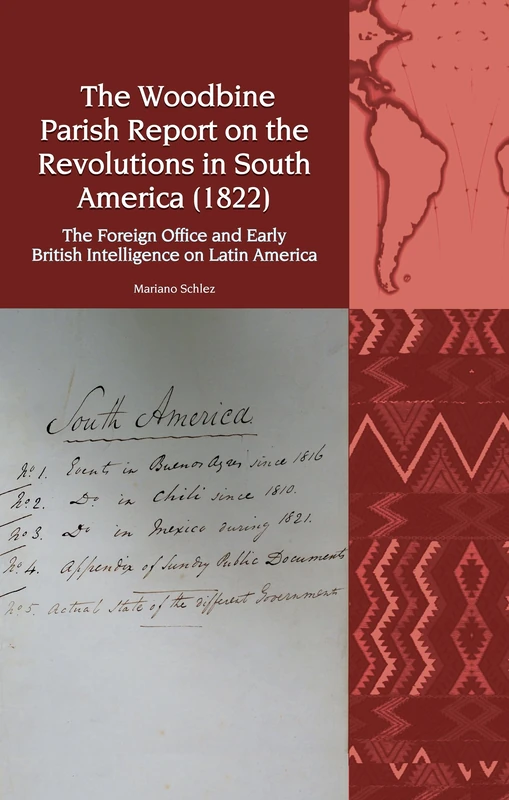 The Woodbine
Parish Report on the
Revolutions in South
America (1822)
The Foreign Office and Early
British Intelligence on Latin America
Mariano Schlez
South America.
No. 1. Events in Buenos Ayres since 1816
No. 2. Do. in Chili since 1810.
No. 3. Do in Mexico during 1821.
No. 4. Appendix of Sundry Public Documents
No. 5. Actual State of the different Governments